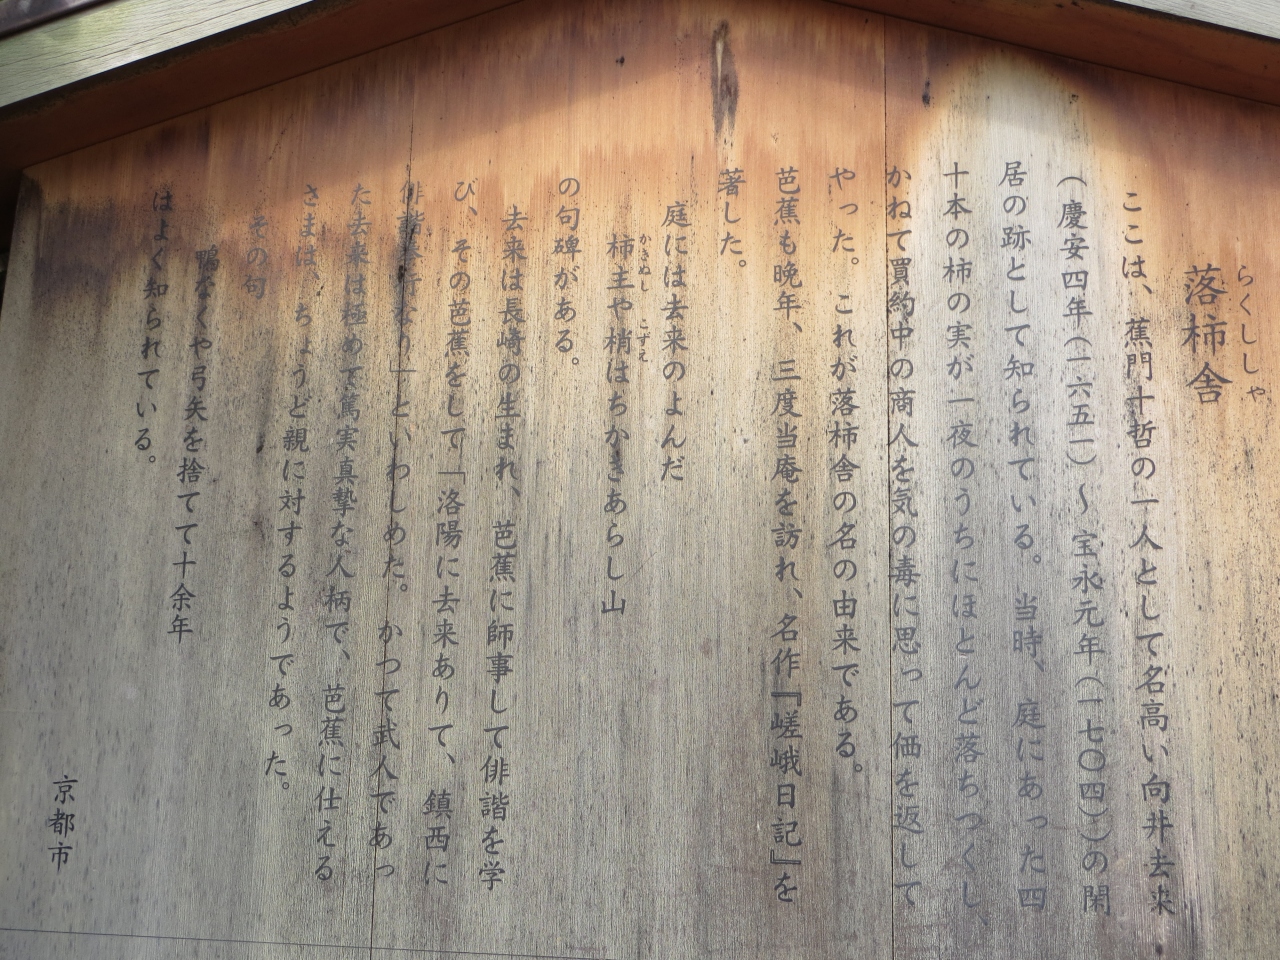 らくししゃ
落柿舎
ここは、蕉門十哲の一人として名高い向井去来
(慶安四年(一六五一)～宝永元年(一七〇四))の閑
居の跡として知られている。当時、庭にあった四
十本の柿の実が一夜のうちにほとんど落ちつくし、
かねて買約中の商人を気の毒に思って価を返して
やった。これが落柿舎の名の由来である。
芭蕉も晩年、三度当庵を訪れ、名作『嵯峨日記』を
著した。
庭には去来のよんだ
かきぬし こずえ
柿主や梢はちかきあらし山
の句碑がある。
去来は長崎の生まれ、芭蕉に師事して俳諧を学
び、その芭蕉をして「洛陽に去来ありて、鎮西に
俳諧奉行なり」といわしめた。かつて武人であっ
た去来は極めて篤実真摯な人柄で、芭蕉に仕える
さまは、ちょうど親に対するようであった。
その句
鴨なくや弓矢を捨てて十余年
はよく知られている。
京都市